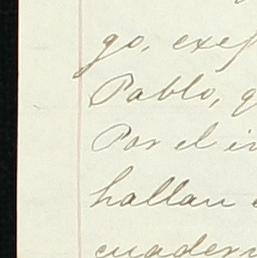 go, excep
Pablo, q
Por el in
hallan
cuadern